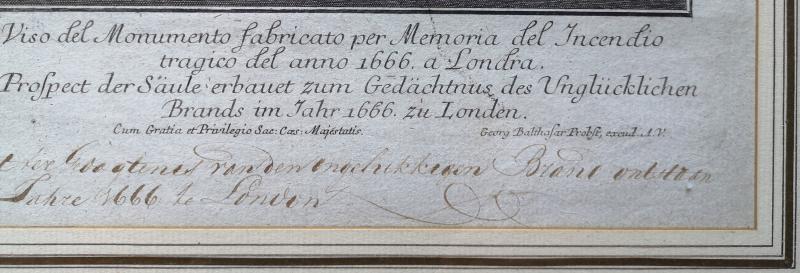 Viso del Monumento fabricato per Memoria del Incendio
tragico del anno 1666. a Londra.
Prospect der Säule erbauet zum Gedächtnus des Unglücklichen
Brands im Jahr 1666. zu Londen.
Cum Gratia et Privilegio Sac: Cæs: Majestatis.
Georg Balthasar Probst, excud. A.V.
der van den ongelukkigen Brand ontstaan
Jahre 1666 te London